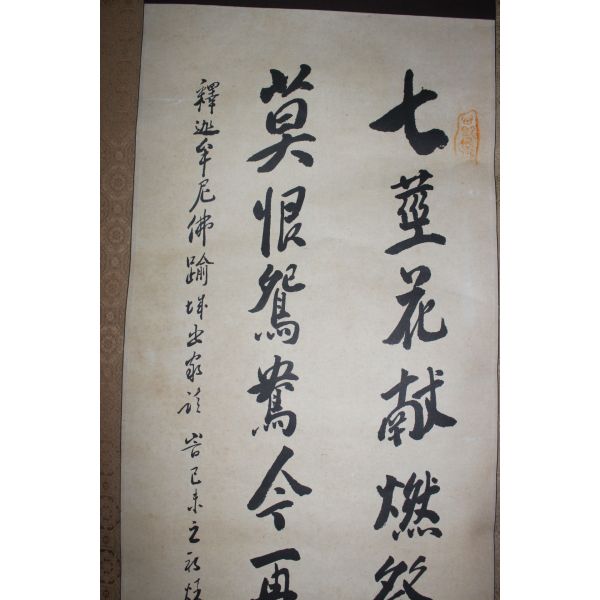 七莖花献燃
莫恨鴛鴦今再
釋迦牟尼佛踰城出家 告己未之初